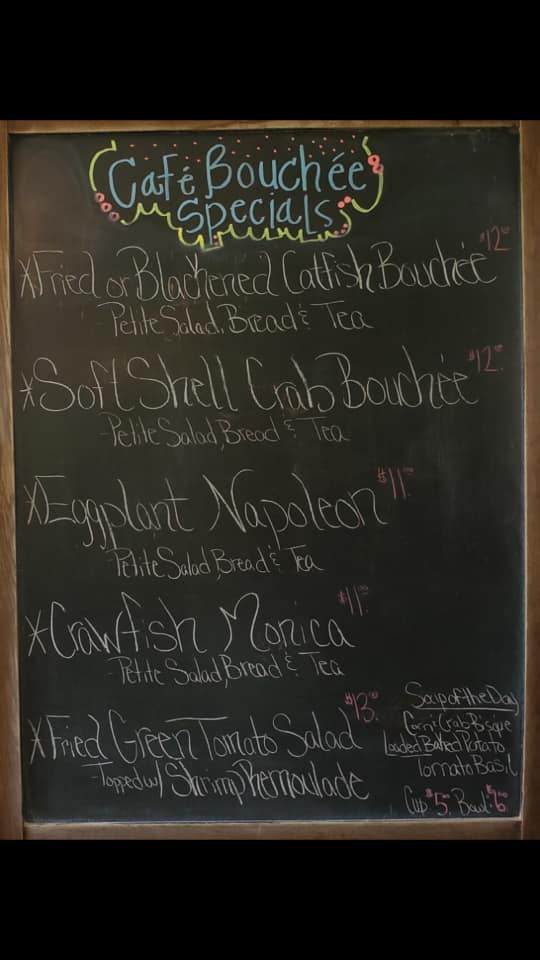 Café Bouchée
Specials
*Fried or Blackened Catfish Bouchée $12.00
-Petite Salad, Bread & Tea
*Soft Shell Crab Bouchée $12.00
-Petite Salad, Bread & Tea
*Eggplant Napoleon $11.00
-Petite Salad, Bread & Tea
*Crawfish Monica $11.00
-Petite Salad, Bread & Tea
*Fried Green Tomato Salad $13.00
-Topped w/ Shrimp Remoulade
Soup of the Day
Corn & Crab Bisque
Loaded Baked Potato
Tomato Basil
Cup $5.00 Bowl